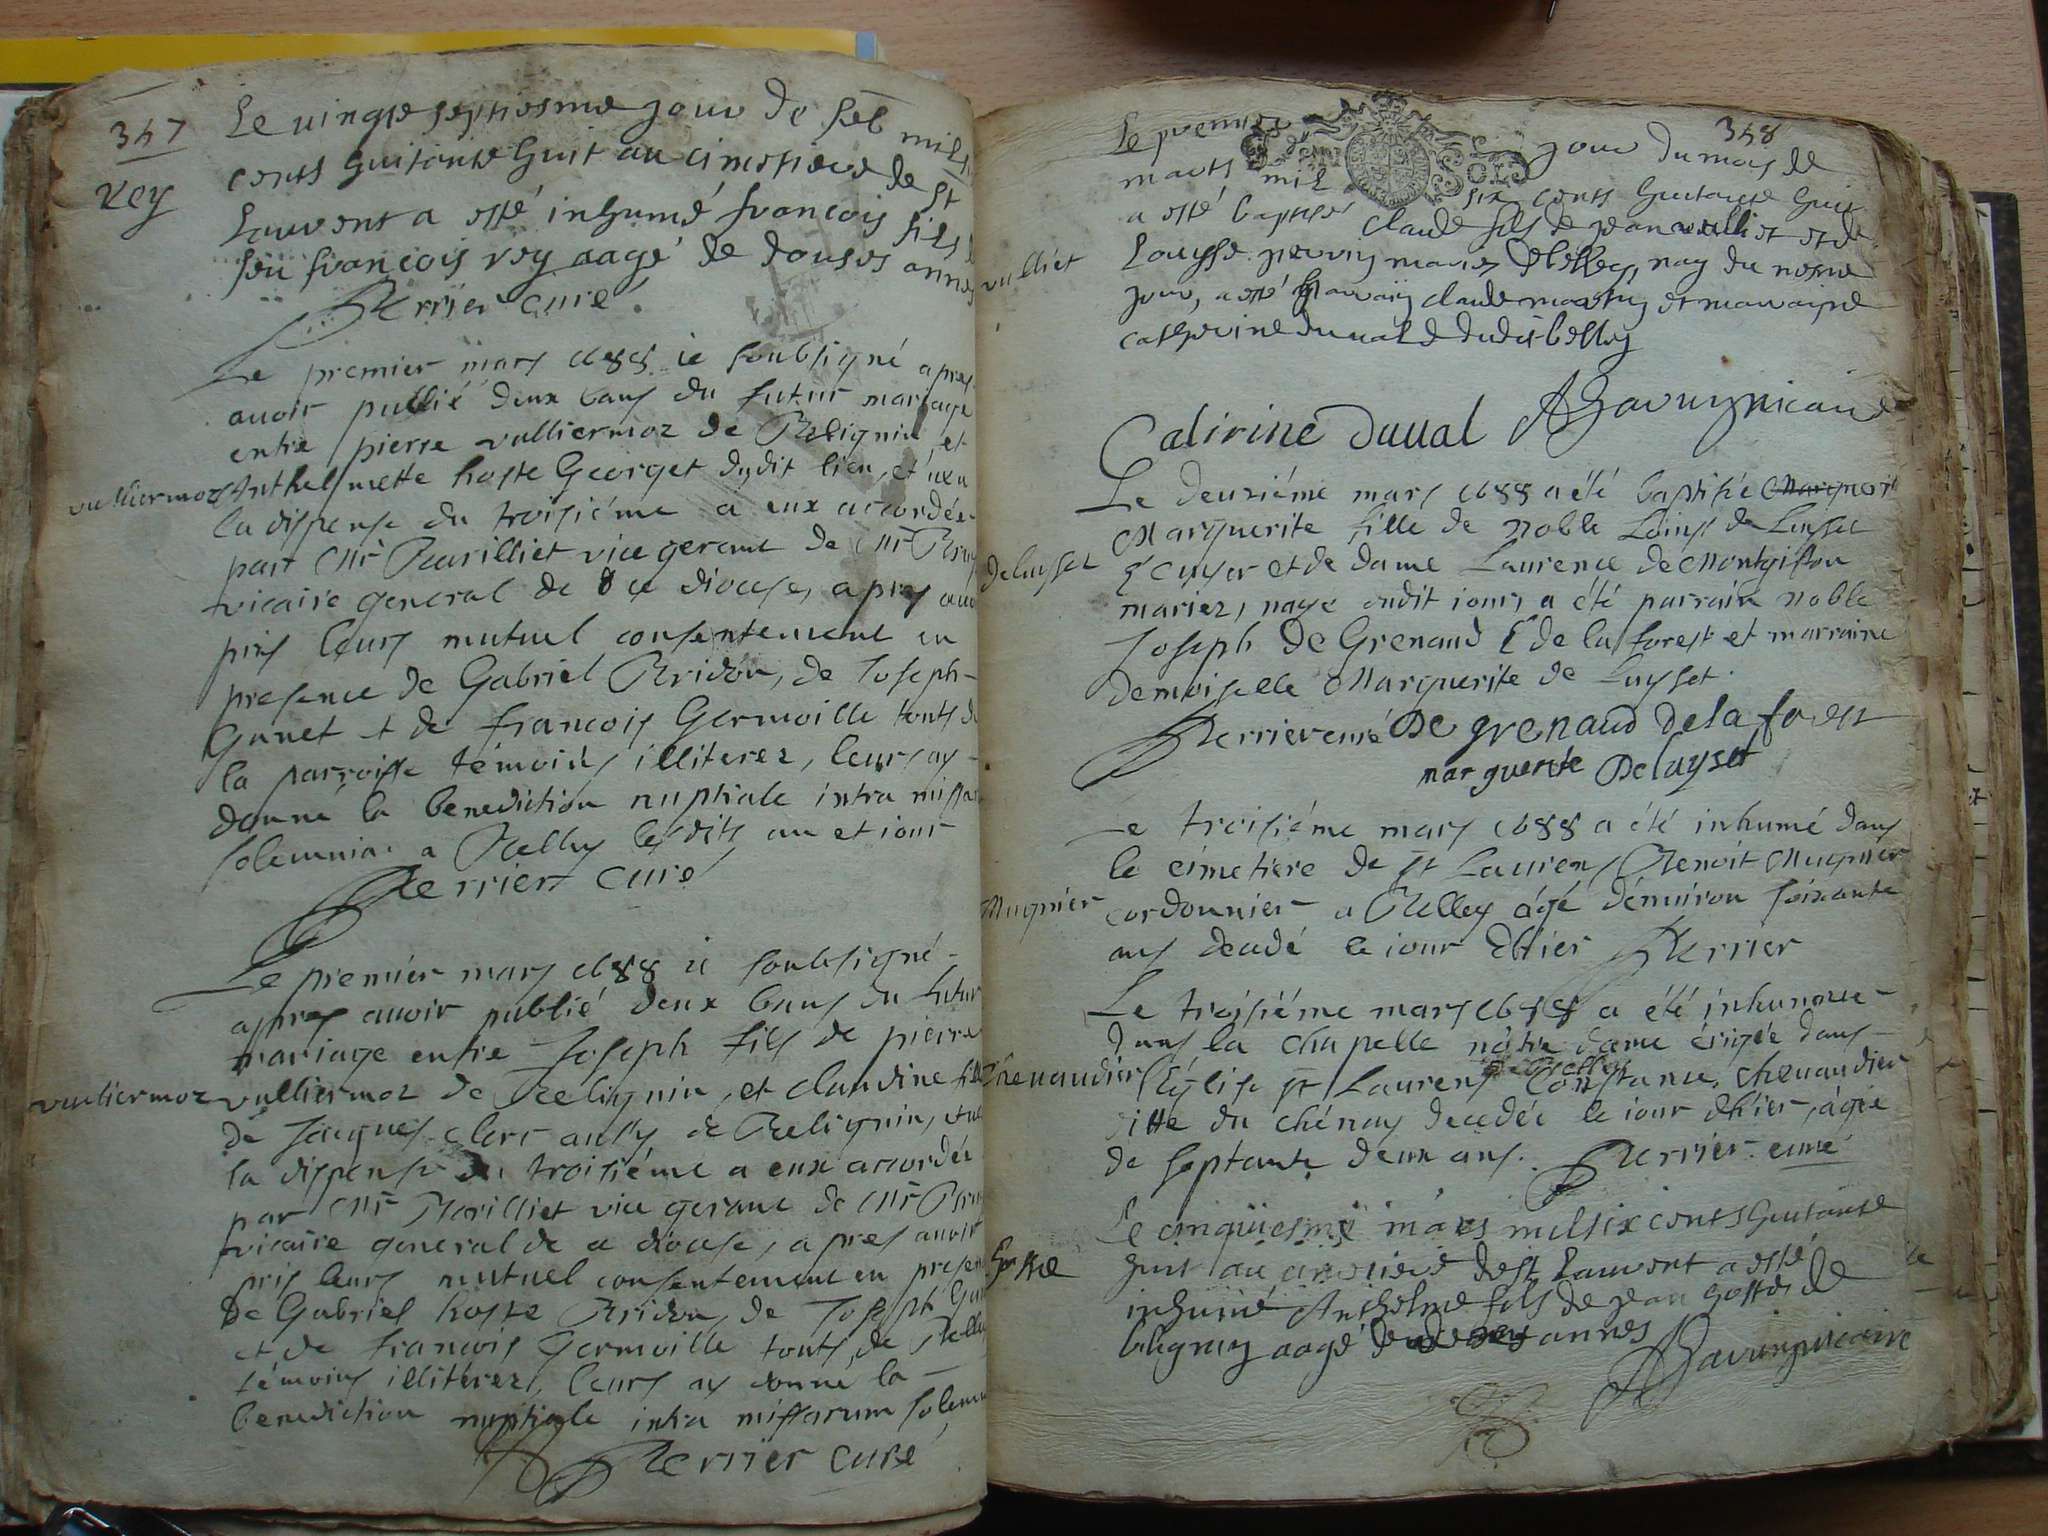 347
Le vingte septiesme jour de feb mil six
cents huitante huit au cimetiere de St
Rey
Laurent a esté inhumé francois fils de
feu francois rey aagé de douses annes
Perrier curé
Le premier mars 1688 ie soubsigné apres
avoir publié deux bans du futur mariage
entre pierre vulliermoz de Belignin et
vulliermoz
Anthelmette hoste Georget dudit lieu, et veu
la dispense du troisiéme a eux accordée
par Mr Marilliet vice gerent de Mr
vicaire general de ce diocese, apres avoir
pris leurs mutuel consentement en
presence de Gabriel Bridon, de Joseph
Gunet et de francois Germoille touts de
la parroisse témoins illiterez, leurs ay
donné la benediction nuptiale intra missarum
solemnia a Belley lesdits an et iour
Perrier curé
Le premier mars 1688 ie soubsigné
apres avoir publié deux bans du futur
mariage entre Joseph fils de pierre
vulliermoz
vulliermoz de Belignin, et claudine fille
de Jacques clerc aussy de Belignin, veu
la dispense du troisiéme a eux accordée
par Mr Marilliet vice gerent de Mr
vicaire general de ce diocese, apres avoir
pris leurs mutuel consentement en presence
de Gabriel hoste Bridon, de Joseph Gunet
et de francois Germoille touts de Belley
témoins illitérez, leurs ay donné la
benediction nuptiale intra missarum solemnia
Perrier curé
348
Le premier jour du moys de
mars mil six cents huitante huit
a esté baptisé claude fils de jean vulliet et de
vulliet
Louysse perrin maries de belley, nay du mesme
jour, a esté parrain claude martin et marraine
catherine duval de dudit belley
Catirine Duual Savarin vicaire
Le deuxiéme mars 1688 a été baptisée Marguerite
Marguerite fille de noble Louis de Luyset
de luyset
Ecuyer et de dame Laurence de Montgiffon
mariez, naye dudit iour, a été parrain noble
Joseph de Grenaud Sr de la forest et marraine
demoiselle Marguerite de Luyset
Perrier curé De grenaud de la forest
marguerite De luyset
Le troisiéme mars 1688 a été inhumé dans
le cimetiere de St Laurens Benoit Mugnier
Mugnier
cordonnier a Belley âgé d'environ soixante
ans decedé le iour d'hier Perrier
Le troisiéme mars 1688 a été inhumée
dans la chapelle nôtre dame érigée dans
de Belley
chenaudier
l'Église St Laurens Constance chenaudier
ditte du chénay decedée le iour d'hier, âgée
de septante deux ans. Perrier curé
Le cinquiesme mars mil six cents huitante
hoste
huit au cimetiere de St Laurent a esté
inhumé Anthelme fils de jean hoste de
beligny aagé de annes
Savarin vicaire